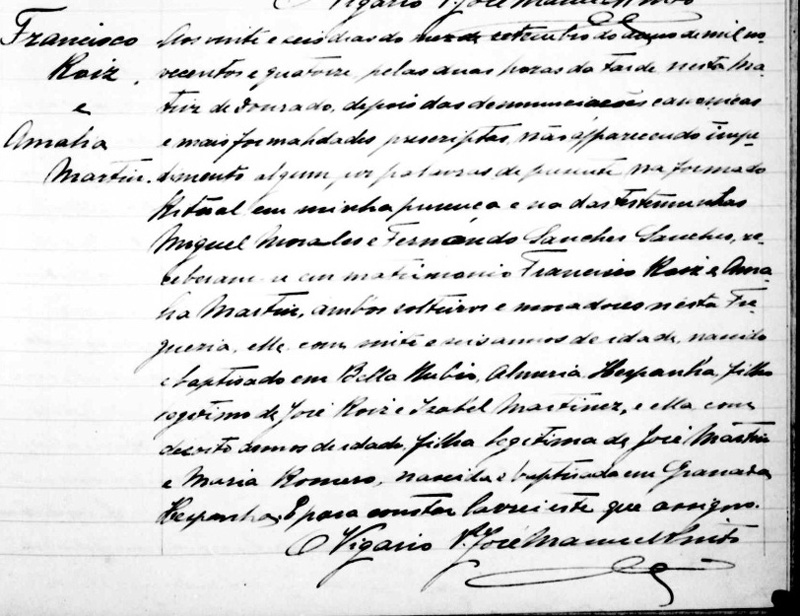 Vigario P. José Manuel
Francisco
Roiz
e
Amalia
Martin.
Aos vinte e seis dias do mez de setembro do anno de mil no-
vecentos e quatorze, pelas duas horas da tarde nesta Ma-
triz de Dourado, depois das denunciações canonicas
e mais formalidades prescriptas, não apparecendo impe-
dimento algum, por palavras de presente na forma do
Ritual em minha presença e na das testemunhas
Miguel Morales e Fernando Sanches Sanches, re-
ceberam-se em matrimonio Francisco Roiz e Ama-
lia Martin, ambos solteiros e moradores nesta Fre-
guezia, elle com vinte e seis annos de idade, nascido
e baptisado em Bella Rubio, Almeria Hespanha, filho
legitimo de José Roiz e Izabel Martinez, e ella com
dezoito annos de idade, filha legitima de José Martin
e Maria Romero, nascida e baptisada em Granada,
Hespanha. E para constar lavrei este que assigno.
O Vigario P. José Manuel